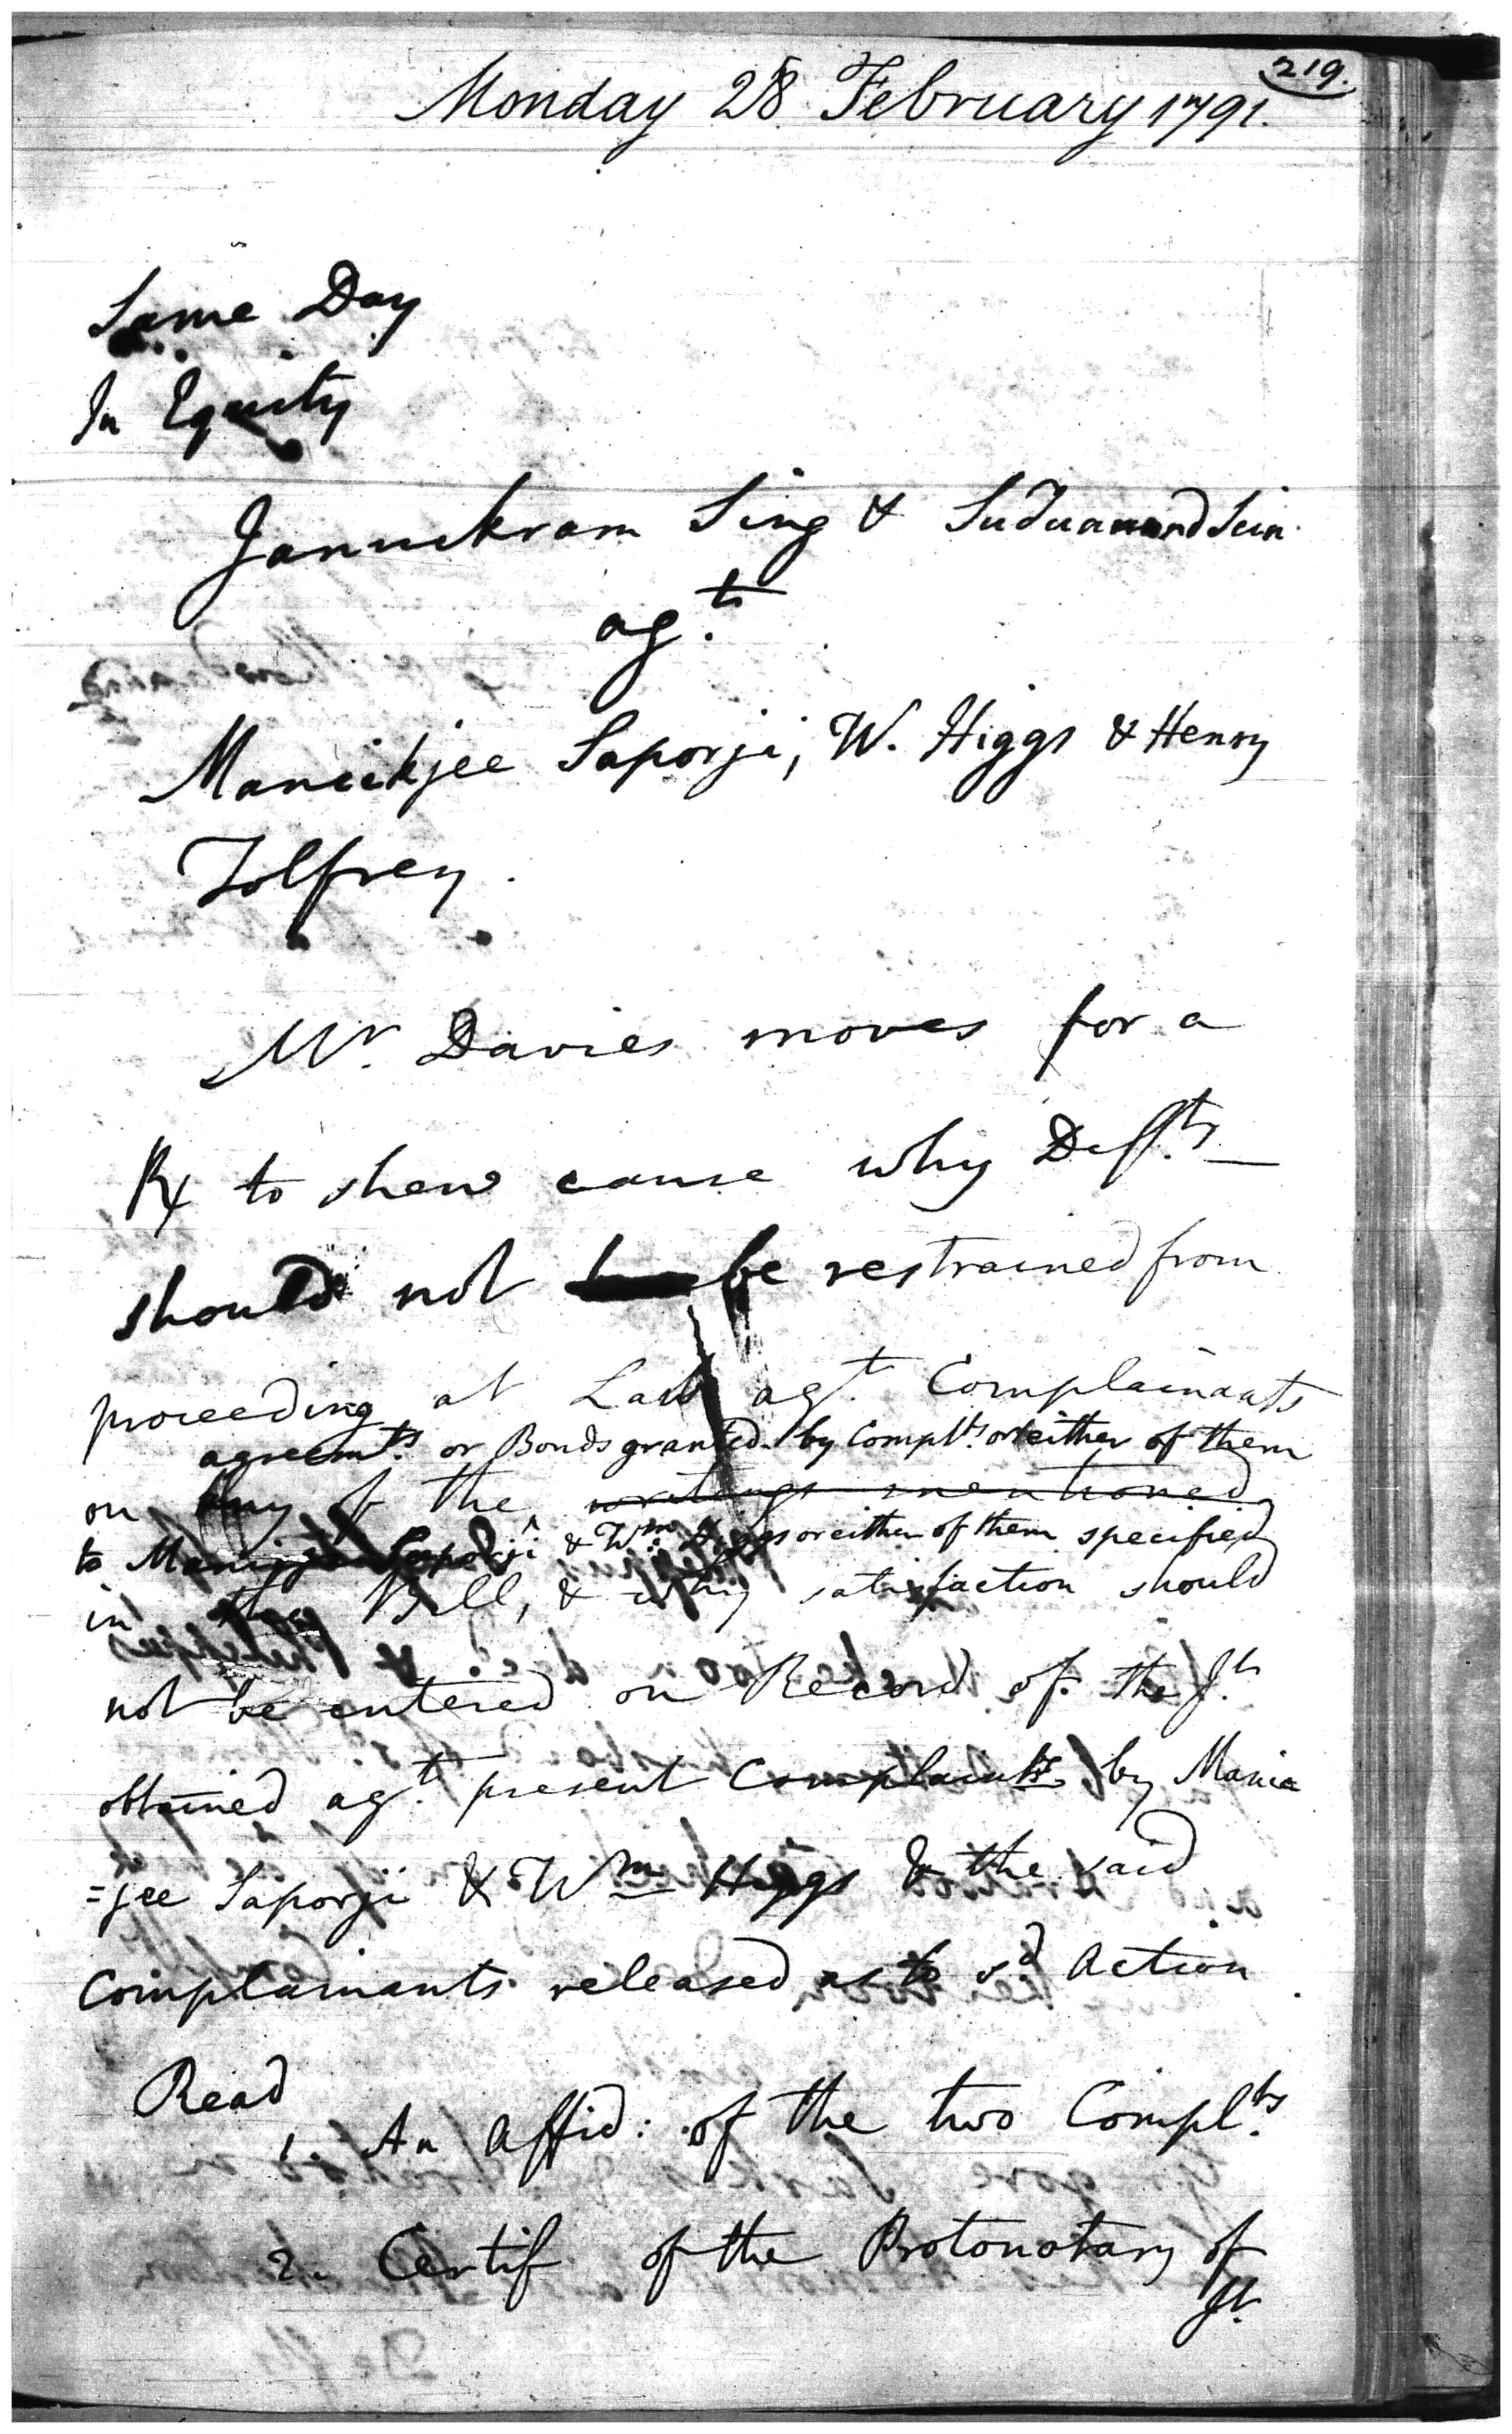 219.
Monday 28 February 1791.
Same Day
In Equity
Jannukram Sing & Suduanund Sein
agt.
Maneckjee Saporji, W. Higgs & Henry
Tolfrey.
Mr. Davies moves for a
Rx to shew cause why Defts.
should not be restrained from
proceeding at Law agt. Complainants
agreemts. or Bonds granted by Complts. or either of them
on any of the writings mentioned
to Saporji & Wm. Higgs or either of them specified
in the Bill, & why satisfaction should
not be entered on Record of the Jt.
obtained agt. present Complaints by Manic
=jee Saporji & Wm Higgs & the said
Complainants released as to sd. Action.
Read
1. An Affid: of the two Complts.
2. Certif of the Protonotary of
Jt.